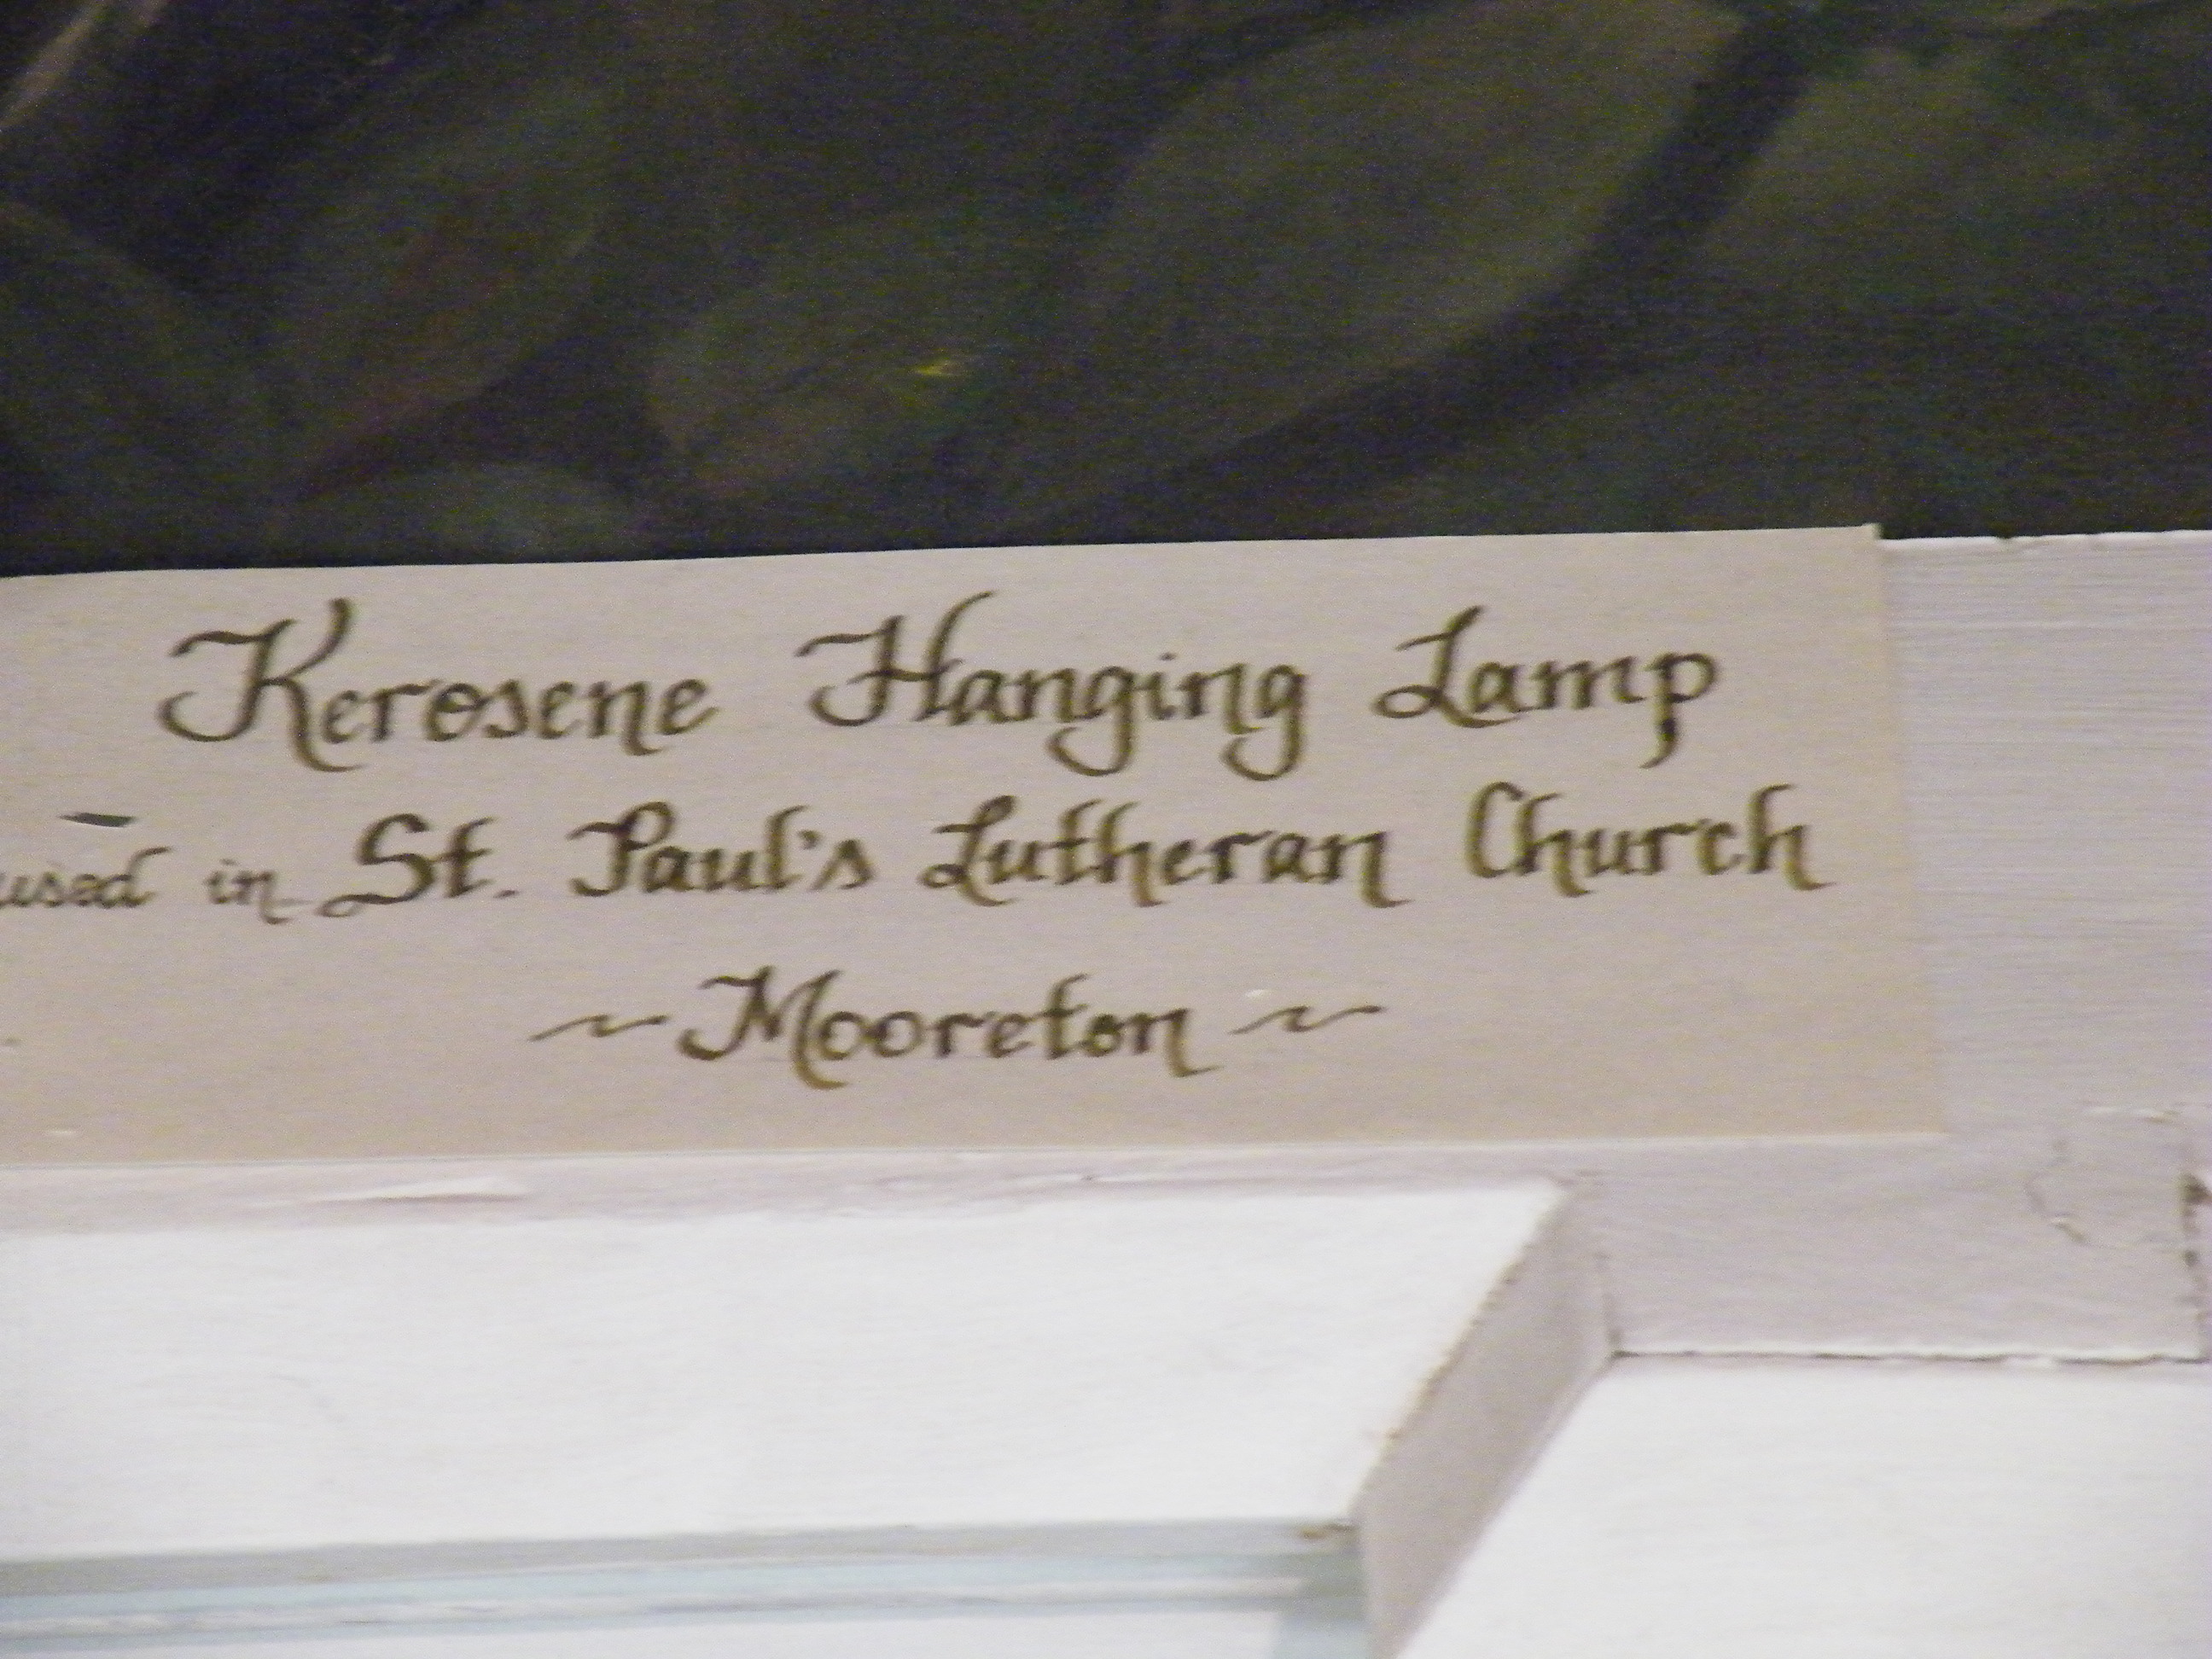 Kerosene Hanging Lamp
used in St. Paul's Lutheran Church
~Mooreton~